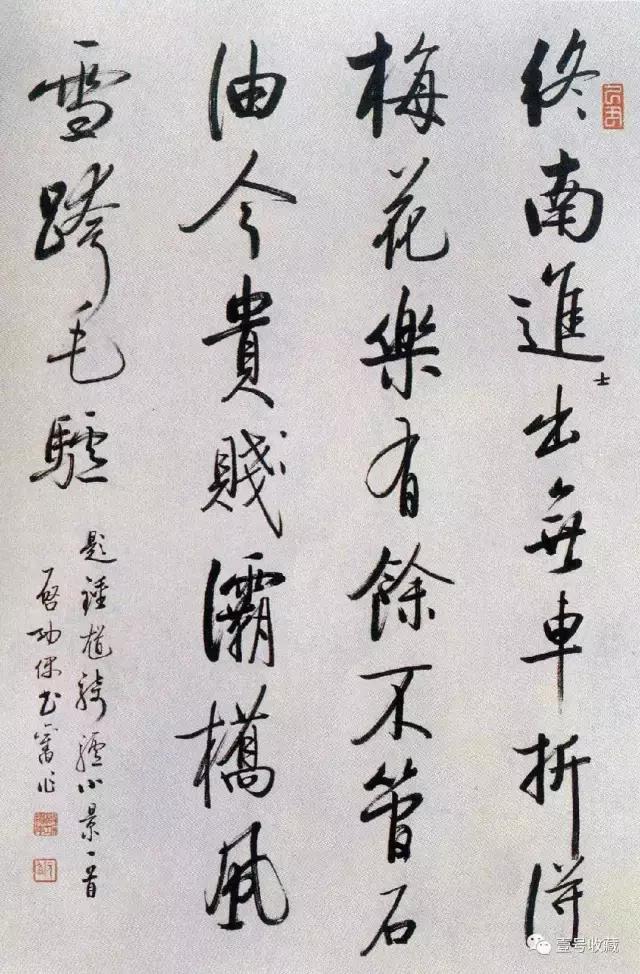 終南進士出無車折得
梅花樂有餘不管石
油今貴賤灞橋風
雪跨毛驢
題鍾馗騎驢小景一首
啓功偶書舊作
壹号收藏